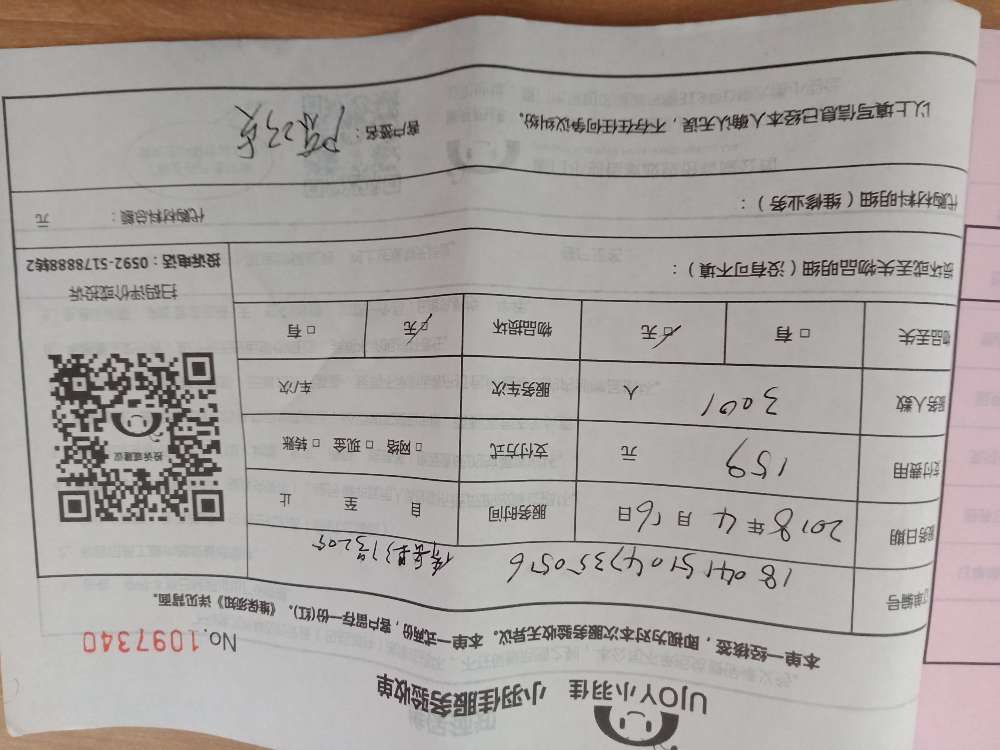 UJOY小羽佳 小羽佳服务验收单
No.1097340
本单一经核签，即视为对本次服务验收无异议。本单一式两份，客户留存一份(红)。《维保须知》详见背面。
单编号 180415104735056
务日期 2018年4月16日 服务时间 自 至 止
付费用 159 元 支付方式 □ 网络 □ 现金 □ 转账
务人数 3001 人 服务车次 车/次
物品丢失 □ 有 □ 无 物品损坏 □ 无 □ 有
投诉或建议
扫码评价或投诉
投诉电话：0592-5178888转2
损坏或丢失物品明细（没有可不填）：
代购材料明细（维修业务）： 代购材料总额： 元
以上填写信息已经本人确认无误，不存在任何争议纠纷。 客户签名：